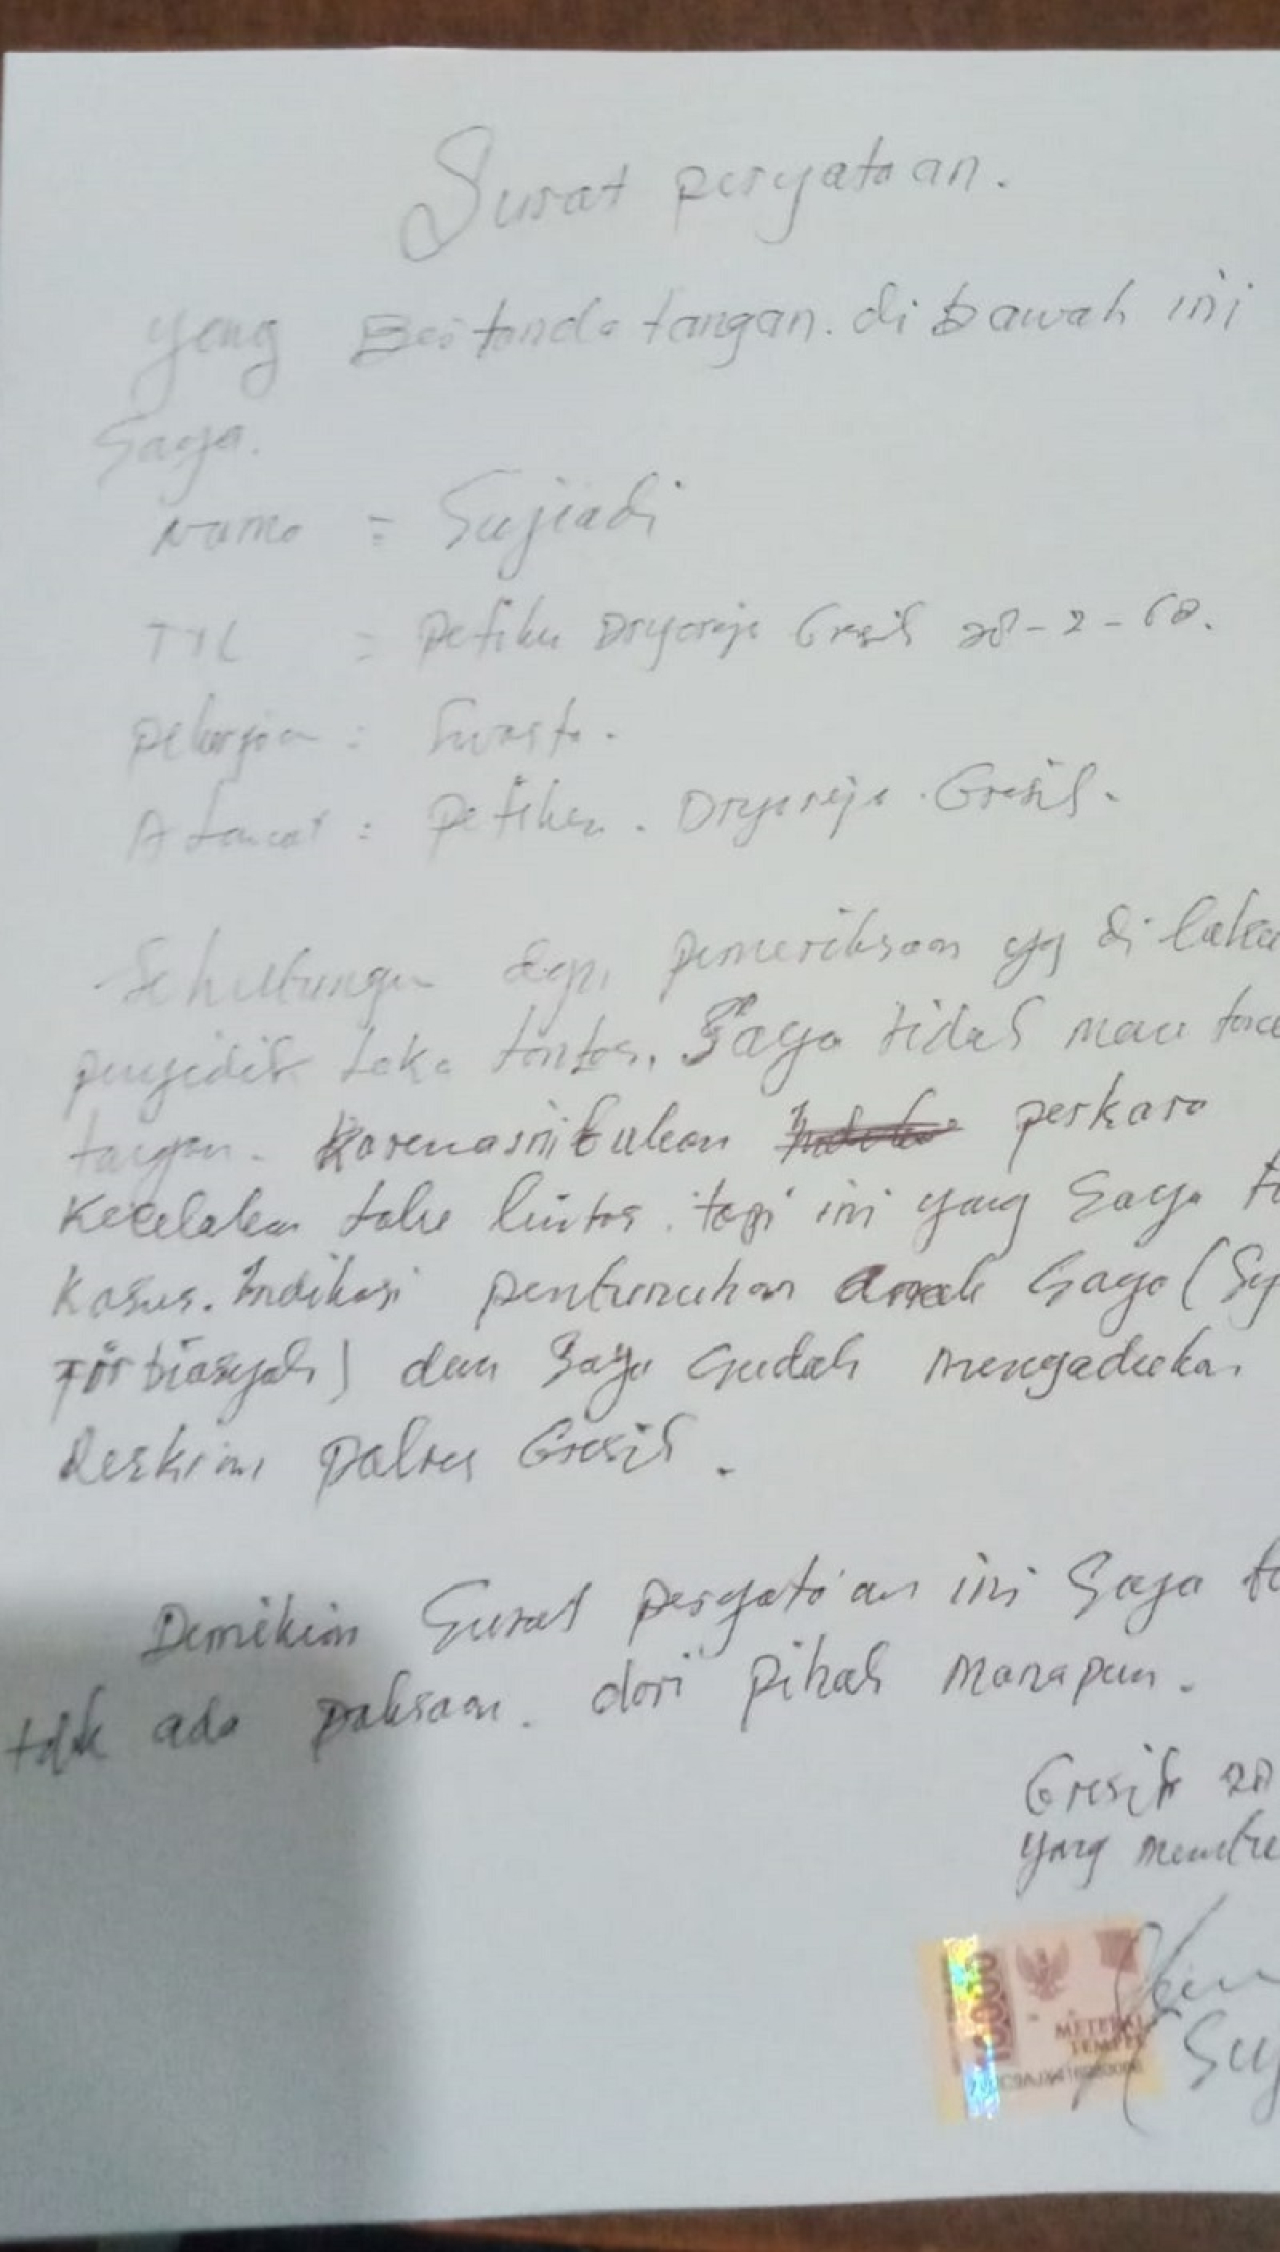 Surat peryataan.
yang Bertanda tangan. di bawah ini
Saya.
Nama = Sujiadi
TTL = Petiken Dryorejo Gresik 28-2-68.
pekerjaan : Swasta.
Alamat : Petiken. Dryorejo. Gresik.
Sehubungan dgn, pemeriksaan yg di laku
penyidik laka lantas. Saya tidak mau tan
tangan. karena ini bukan perkara
kecelakaan lalu lintas. tapi ini yang Saya
kasus. Indikasi pembunuhan anak Saya (Sy
) dan Saya Sudah mengadukan
Reskrim polres Gresik.
Demikian Surat peryataan ini Saya
tdk ada paksaan. dari pihak manapun.
Gresik 20
yang membu
10000
METERAI
TEMPEL
Suj